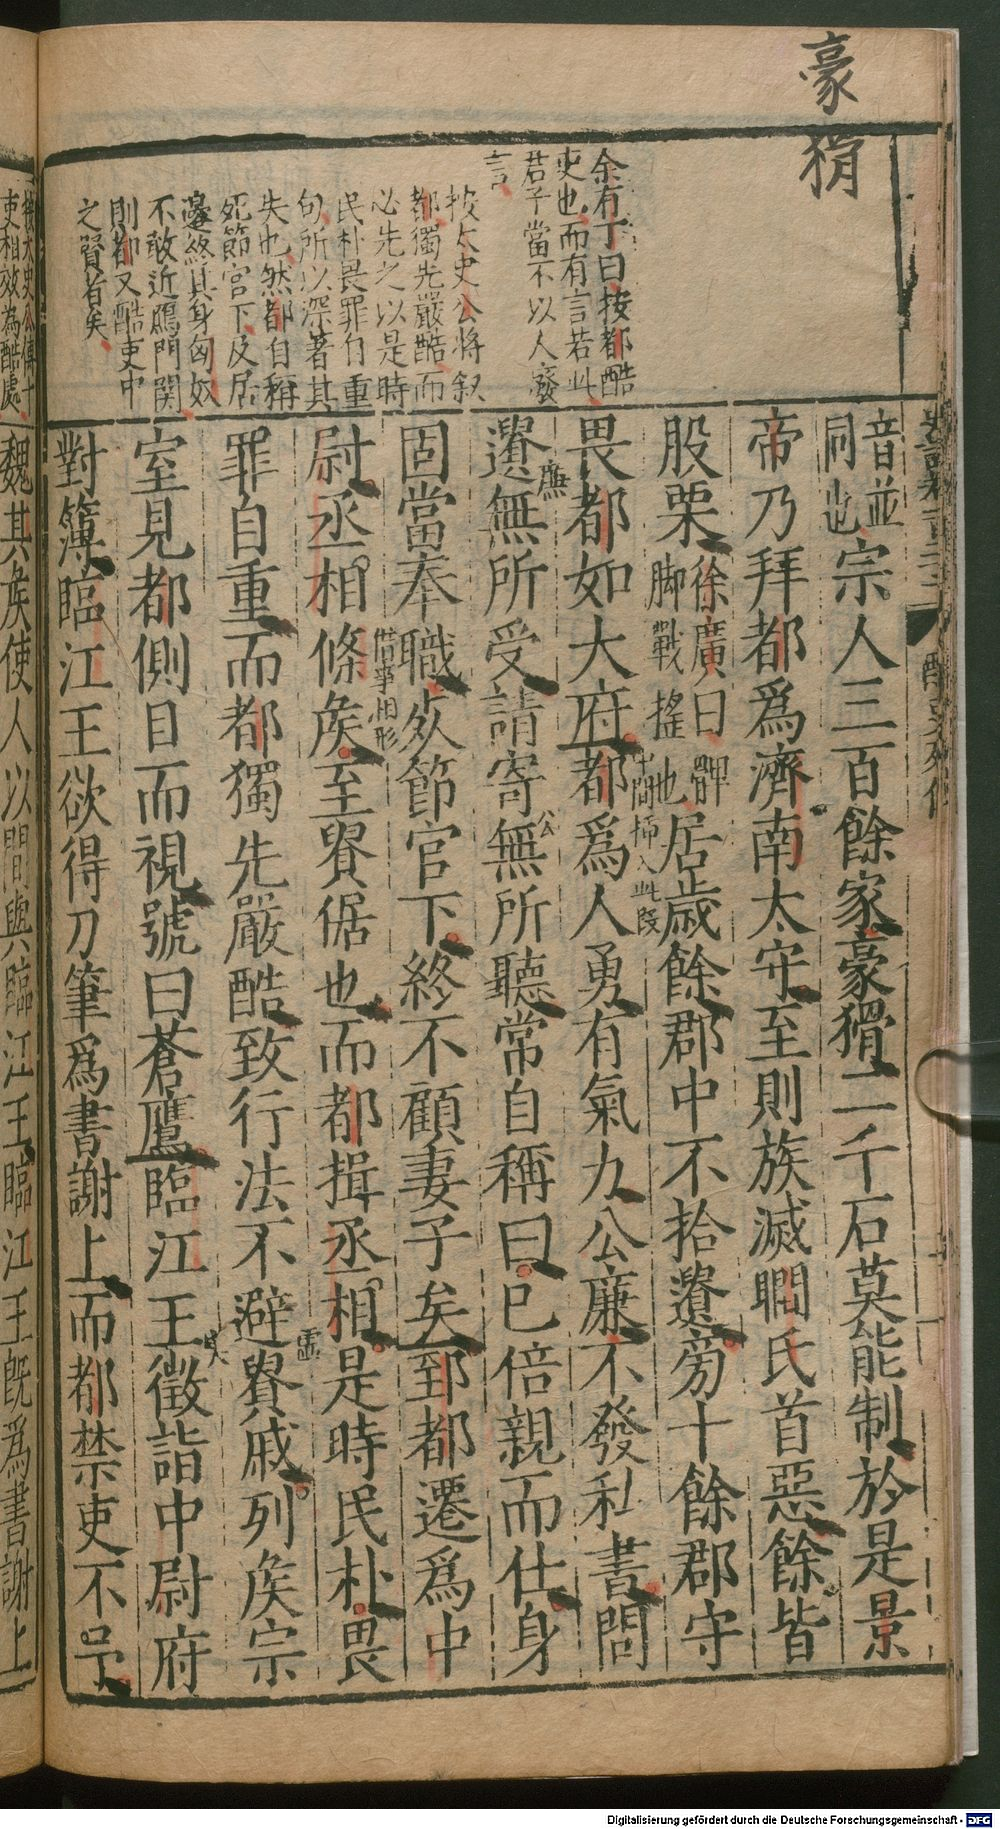 豪猾
余有丁曰按都酷
吏也而有言若此
君子當不以人廢
言
按太史公將叙
都獨先嚴酷而
必先之以是時
民朴畏罪自重
句所以深著其
失也然都自稱
死節官下及居
邊終其身匈奴
不敢近鴈門関
則都又酷吏中
之賢者矣
音並
同也
宗人三百餘家豪猾二千石莫能制於是景
帝乃拜都爲濟南太守至則族滅瞯氏首惡餘皆
股栗
徐廣曰髀
脚戰搖也
居歲餘郡中不拾遺旁十餘郡守
中間插入此段
畏都如大府都爲人勇有氣力公廉不發私書問
廉
公
遺無所受請寄無所聽常自稱曰已倍親而仕身
固當奉職死節官下終不顧妻子矣郅都遷爲中
借事相形
尉丞相條侯至貴倨也而都揖丞相是時民朴畏
虛
罪自重而都獨先嚴酷致行法不避貴戚列侯宗
室見都側目而視號曰蒼鷹臨江王徵詣中尉府
對簿臨江王欲得刀筆爲書謝上而都禁吏不予
按太史公傳十
吏相效為酷處
魏其侯使人以間與臨江王臨江王既爲書謝上
Digitalisierung gefördert durch die Deutsche Forschungsgemeinschaft - DFG